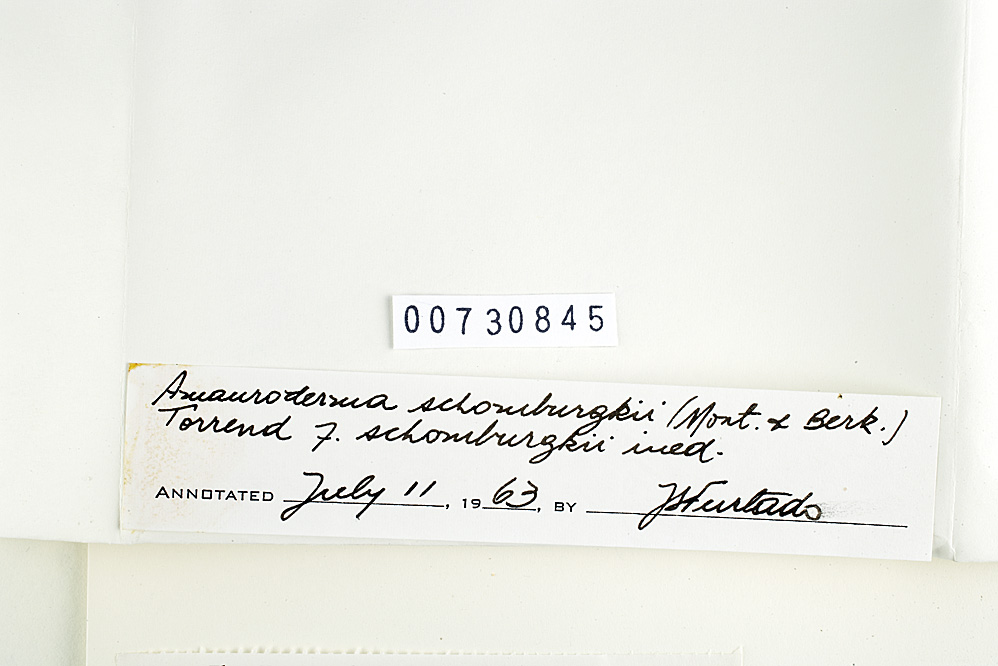 00730845
Amauroderma schomburgkii (Mont. & Berk.)
Torrend f. schomburgkii ined.
ANNOTATED July 11, 1963, BY JSFurtado